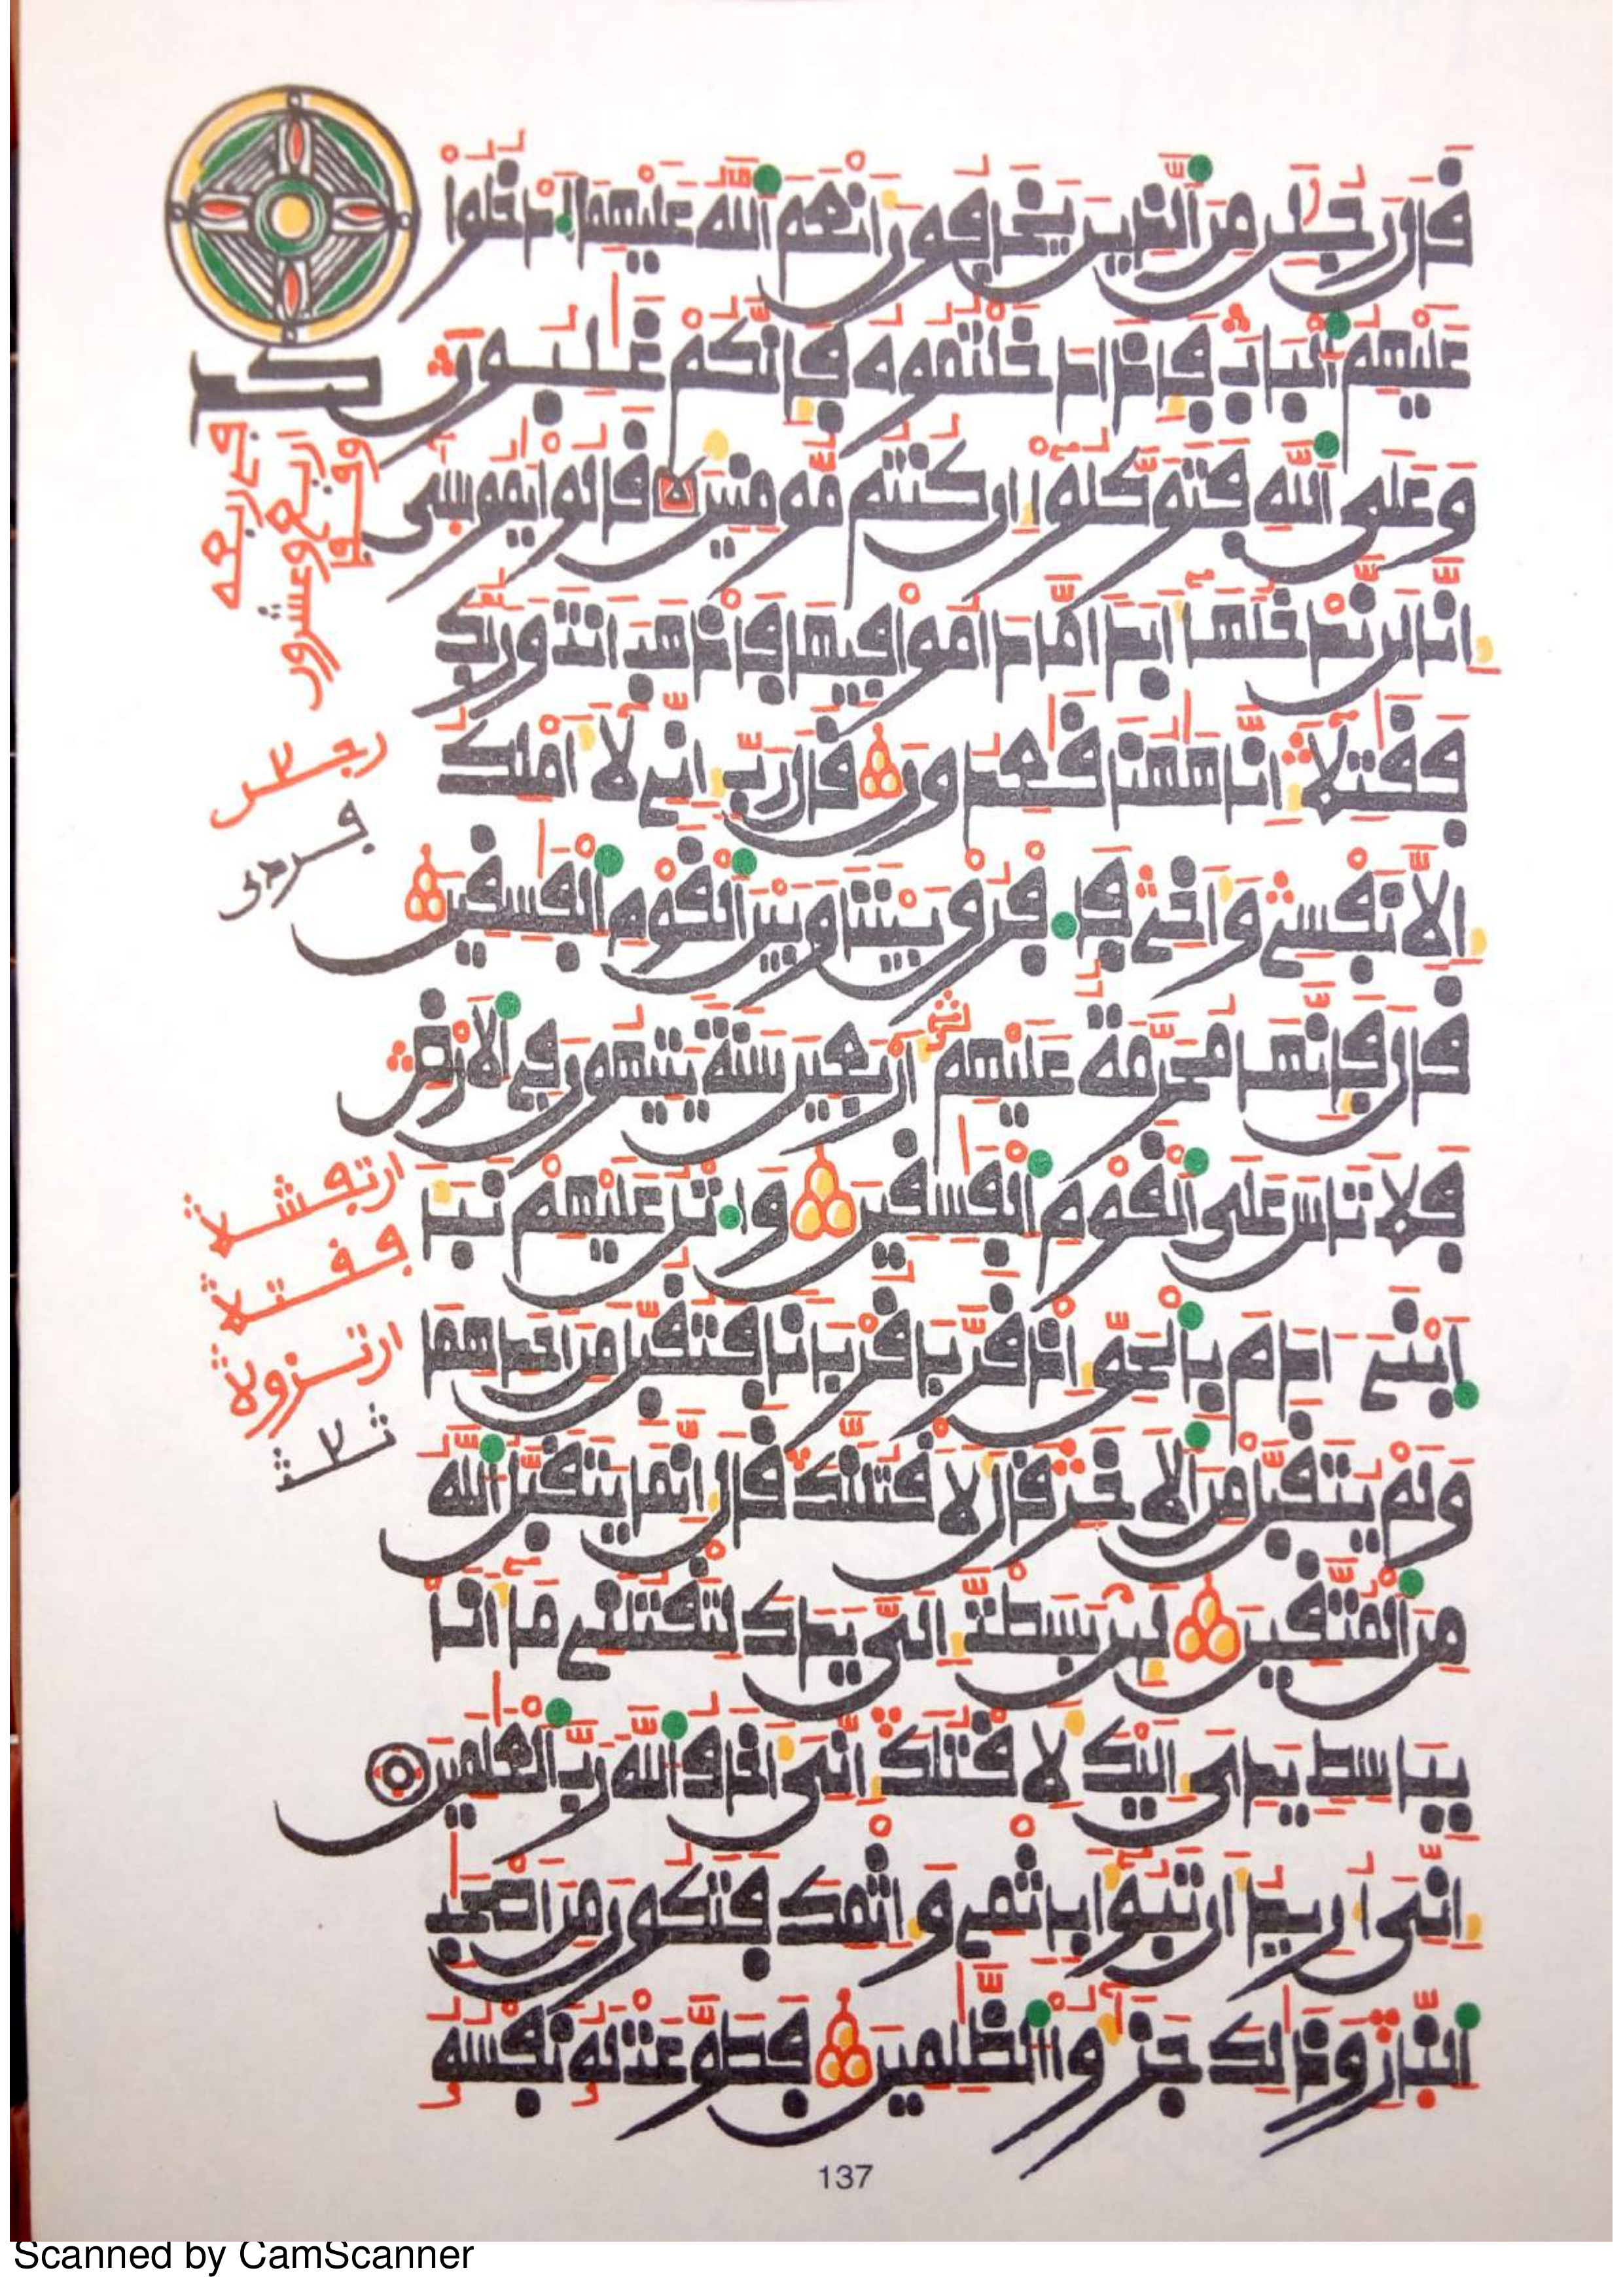 قال رجلن من الذين يخافون أنعم الله عليهما ادخلوا
عليهم الباب فإذا دخلتموه فإنكم غلبون
وعلى الله فتوكلوا إن كنتم مومنين قالوا يموسى
إنا لن ندخلها أبدا ما داموا فيها فاذهب أنت وربك
فقتلا إنا ههنا قعدون قال رب إني لا أملك
إلا نفسي وأخي فافرق بيننا وبين القوم الفسقين
قال فإنها محرمة عليهم أربعين سنة يتيهون في الارض
فلا تاس على القوم الفسقين واتل عليهم نبأ
ابني ءادم بالحق إذ قربا قربانا فتقبل من احدهما
ولم يتقبل من الاخر قال لأقتلنك قال إنما يتقبل الله
من المتقين لئن بسطت إلي يدك لتقتلني ما أنا
بباسط يدي إليك لأقتلك إني أخاف الله رب العلمين
إني أريد أن تبوأ بإثمي وإثمك فتكون من اصحب
النار وذلك جزؤا الظلمين فطوعت له نفسه
137
Scanned by CamScanner